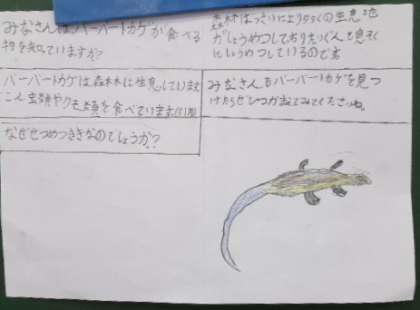 みなさんはバーバートカゲが食べる
物を知っていますか?
バーバートカゲは森林に生息しています
こん虫類やクモ類を食べています
なぜぜつめつききなのでしょうか?
森林ばっさいにより多くの生息地
がしょうめつしており
ているのです
みなさんもバーバートカゲを見つ
けたらぜひつかまえてみてくださいね。